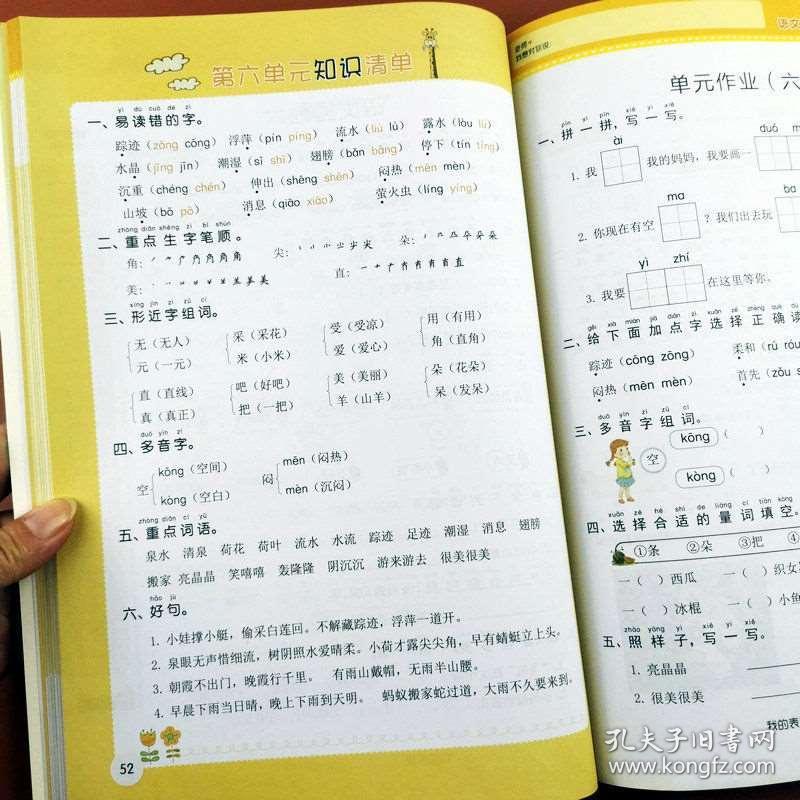 第六单元知识清单
yì dú cuò de zì
一、易读错的字。
踪迹（zōng cōng） 浮萍（pín píng） 流水（liú lú） 露水（lòu lù）
水晶（jīng jīn） 潮湿（sī shī） 翅膀（bǎn bǎng） 停下（tín tíng）
沉重（chéng chén） 伸出（shēng shēn） 闷热（mēn mèn）
山坡（bō pō） 消息（qiāo xiāo） 萤火虫（líng yíng）
zhòng diǎn shēng zì bǐ shùn
二、重点生字笔顺。
角： 尖： 朵：
美： 直：
xíng jìn zì zǔ cí
三、形近字组词。
无（无人） 采（采花） 受（受凉） 用（有用）
元（一元） 米（小米） 爱（爱心） 角（直角）
直（直线） 吧（好吧） 美（美丽） 朵（花朵）
真（真正） 把（一把） 羊（山羊） 呆（发呆）
duō yīn zì
四、多音字。
空 kōng（空间） kòng（空白） 闷 mēn（闷热） mèn（沉闷）
zhòng diǎn cí yǔ
五、重点词语。
泉水 清泉 荷花 荷叶 流水 水流 踪迹 足迹 潮湿 消息 翅膀
搬家 亮晶晶 笑嘻嘻 轰隆隆 阴沉沉 游来游去 很美很美
hǎo jù
六、好句。
1. 小娃撑小艇，偷采白莲回。不解藏踪迹，浮萍一道开。
2. 泉眼无声惜细流，树阴照水爱晴柔。小荷才露尖尖角，早有蜻蜓立上头。
3. 朝霞不出门，晚霞行千里。 有雨山戴帽，无雨半山腰。
4. 早晨下雨当日晴，晚上下雨到天明。 蚂蚁搬家蛇过道，大雨不久要来到。
52
语文
我想对你说：
单元作业（六
pīn yì pīn xiě yì xiě
一、拼一拼，写一写。
ài duǒ mǎ
1. 我 我的妈妈，我要画一
ma ba
2. 你现在有空 ？我们出去玩
yì zhí
3. 我要 在这里等你。
gěi xià miàn jiā diǎn zì xuǎn zé zhèng què dú
二、给下面加点字选择正确读
踪迹（cōng zōng） 柔和（rú róu
闷热（mēn mèn） 首先（zǒu s
duō yīn zì zǔ cí
三、多音字组词。
kōng （ ）
空
kòng （ ）
xuǎn zé hé shì de liàng cí tián kòng
四、选择合适的量词填空。
①条 ②朵 ③把 ④
一（ ）西瓜 一（ ）织女
一（ ）冰棍 一（ ）小鱼
zhào yàng zi xiě yì xiě
五、照样子，写一写。
1. 亮晶晶
2. 很美很美
我的表
孔夫子旧书网
www.kongfz.com